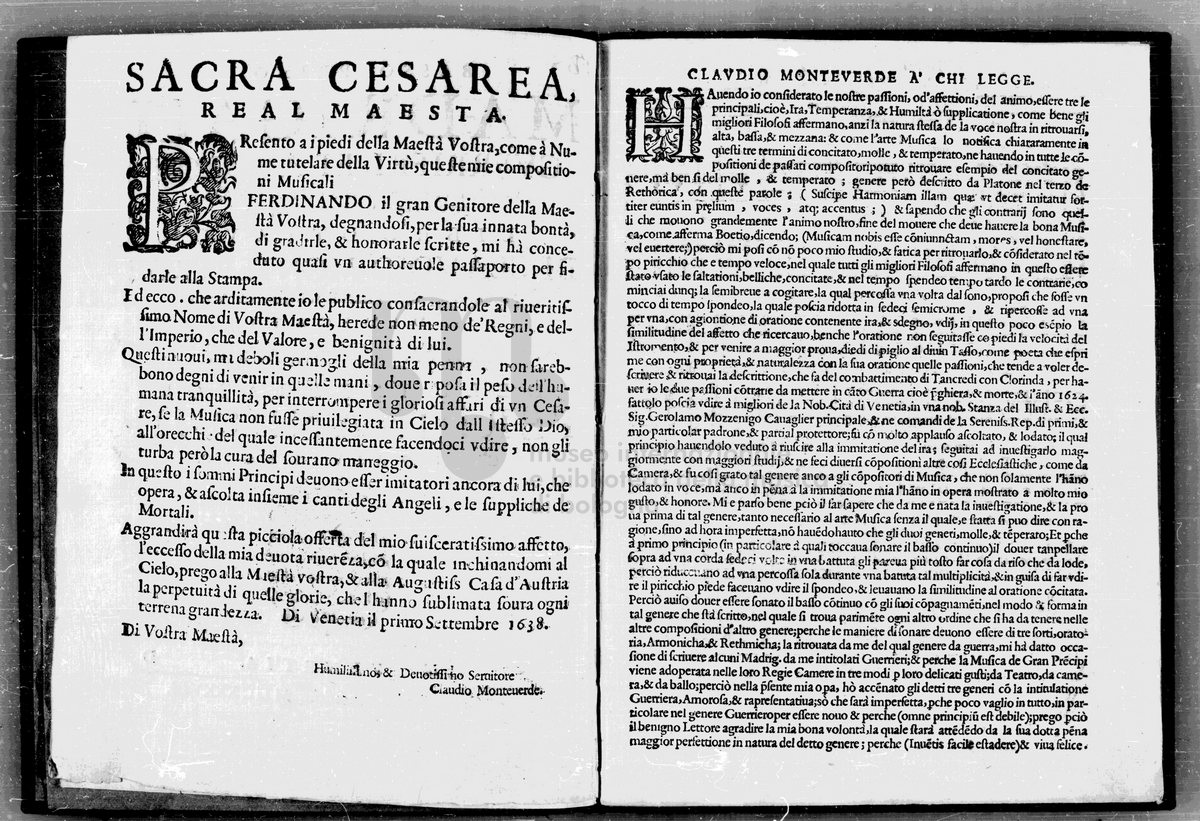 SACRA CESAREA,
REAL MAESTA.
PResento a i piedi della Maestà Vostra, come à Nu-
me tutelare della Virtù, queste mie compositio-
ni Musicali
FERDINANDO il gran Genitore della Mae-
stà Vostra, degnandosi, per la sua innata bontà,
di gradirle, & honorarle scritte, mi hà conce-
duto quasi vn authoreuole passaporto per fi-
darle alla Stampa.
Ed ecco. che arditamente io le publico consacrandole al riueritis-
simo Nome di Vostra Maestà, herede non meno de' Regni, e del-
l'Imperio, che del Valore, e benignità di lui.
Questi nuoui, mi deboli germogli della mia penna, non sareb-
bono degni di venir in quelle mani, doue riposa il peso dell'hu-
mana tranquillità, per interrompere i gloriosi affari di vn Cesa-
re, se la Musica non fusse priuilegiata in Cielo dall Istesso Dio,
all'orecchie del quale incessantemente facendoci vdire, non gli
turba però la cura del sourano maneggio.
In questo i sommi Principi deuono esser imitatori ancora di lui, che
opera, & ascolta insieme i canti degli Angeli, e le suppliche de
Mortali.
Aggrandirà questa picciola offerta del mio suisceratissimo affetto,
l'eccesso della mia deuota riuerẽza, cõ la quale inchinandomi al
Cielo, prego alla Maestà vostra, & alla Augustiss Casa d'Austria
la perpetuità di quelle glorie, che l hanno sublimata soura ogni
terrena grandezza. Di Venetia il primo Settembre 1638.
Di Vostra Maestà,
Humilissimo, & Deuotissimo Seruitore
Claudio Monteuerde.
CLAVDIO MONTEVERDE A' CHI LEGGE.
HAuendo io considerato le nostre passioni, od'affettioni, del animo, essere tre le
principali, cioè, Ira, Temperanza, & Humiltà ò supplicatione, come bene gli
migliori Filosofi affermano, anzi la natura stessa de la voce nostra in ritrouarsi,
alta, bassa, & mezzana: & come l'arte Musica lo notifica chiataramente in
questi tre termini di concitato, molle, & temperato, ne hauendo in tutte le cõ-
positioni de passati compositori potuto ritrouare esempio del concitato ge-
nere, ma ben si del molle, & temperato; genere però descritto da Platone nel terzo de
Rethorica, con queste parole; (Suscipe Harmoniam illam quæ vt decet imitatur for-
titer euntis in prælium, voces, atq; accentus;) & sapendo che gli contrarij sono quel-
li che mouono grandemente l'animo nostro, fine del mouere che deue hauere la bona Musi-
ca, come afferma Boetio, dicendo; (Musicam nobis esse cõniunctam, mores, vel honestare,
vel euertere;) perciò mi posi cõ nõ poco mio studio, & fatica per ritrouarlo, & cõsiderato nel tẽ-
po piricchio che e tempo veloce, nel quale tutti gli migliori Filosofi affermano in questo essere
stato vsato le saltationi, belliche, concitate, & nel tempo spendeo tempo tardo le contrarie, co
minciai dunq; la semibreue a cogitare, la qual percossa vna volta dal sono, proposi che fosse vn
tocco di tempo spondeo, la quale poscia ridotta in sedeci semicrome, & ripercosse ad vna
per vna, con agiontione di oratione contenente ira, & sdegno, vdij, in questo poco esẽpio la
similitudine del affetto che ricercauo, benche l'oratione non seguitasse co piedi la velocità del
Istromento, & per venire a maggior proua, diedi di piglio al diuin Tasso, come poeta che espri
me con ogni proprietà, & naturalezza con la sua oratione quelle passioni, che tende a voler de-
scriuere & ritrouai la descrittione, che fa del combattimento di Tancredi con Clorinda, per ha-
uer io le due passioni cõtrarie da mettere in cãto Guerra cioè p̃ghiera, & morte, & l'ãno 1624.
fattolo poscia vdire à migliori de la Nob. Cità di Venetia, in vna nob. Stanza del Illust. & Ecc.
Sig. Gerolamo Mozzenigo Cauaglier principale, & ne comandi de la Sereniss. Rep. di primi, &
mio particolar padrone, & partial protettore; fu cõ molto applauso ascoltato, & lodato; il qual
principio hauendolo veduto à riuscire alla immitatione del ira; seguitai ad inuestigarlo mag-
giormente con maggiori studij, & ne feci diuersi cõpositioni altre cosi Ecclesiastiche, come da
Camera, & fu cosi grato tal genere anco a gli cõpositori di Musica, che non solamente l'hãno
lodato in voce, mà anco in pẽna à la immitatione mia l'hãno in opera mostrato a molto mio
gusto, & honore. Mi e parso bene p̃ciò il far sapere che da me e nata la inuestigatione, & la pro
ua prima di tal genere, tanto necessario al arte Musica senza il quale, e statta si puo dire con ra-
gione, sino ad hora imperfetta, nõ hauẽdo hauto che gli duoi generi, molle, & tẽperato; Et p̃che
à primo principio (in particolare à quali toccaua sonare il basso continuo) il douer tampellare
sopra ad vna corda sedeci volte in vna battuta gli pareua più tosto far cosa da riso che da lode,
perciò riduceuano ad vna percossa sola durante vna batuta tal multiplicità, & in guisa di far vdi-
re il piricchio piede faceuano vdire il spondeo, & leuauano la similitudine al oratione cõcitata.
Perciò auiso douer essere sonato il basso cõtinuo cõ gli suoi cõpagnamẽti, nel modo & forma in
tal genere che stà scritto, nel quale si troua parimẽte ogni altro ordine che si ha da tenere nelle
altre compositioni d'altro genere; perche le maniere di sonare deuono essere di tre sorti, orato-
ria, Armonicha, & Rethmicha; la ritrouata da me del qual genere da guerra, mi hà datto occa-
sione di scriuere alcuni Madrig. da me intitolati Guerrieri; & perche la Musica de Gran Prẽcipi
viene adoperata nelle loro Regie Camere in tre modi p loro delicati gusti; da Teatro, da came-
ra, & da ballo; perciò nella p̃sente mia opa, hò accẽnato gli detti tre generi cõ la intitulatione
Guerriera, Amorosa, & rapresentatiua; sò che sarà imperfetta, p̃che poco vaglio in tutto, in par-
ticolare nel genere Guerriero per essere nouo & perche (omne principiũ est debile); prego p̃ciò
il benigno Lettore agradire la mia bona volontà, la quale starà attẽdẽdo da la sua dotta pẽna
maggior perfettione in natura del detto genere; perche (Inuẽtis facile est adere) & viua felice.